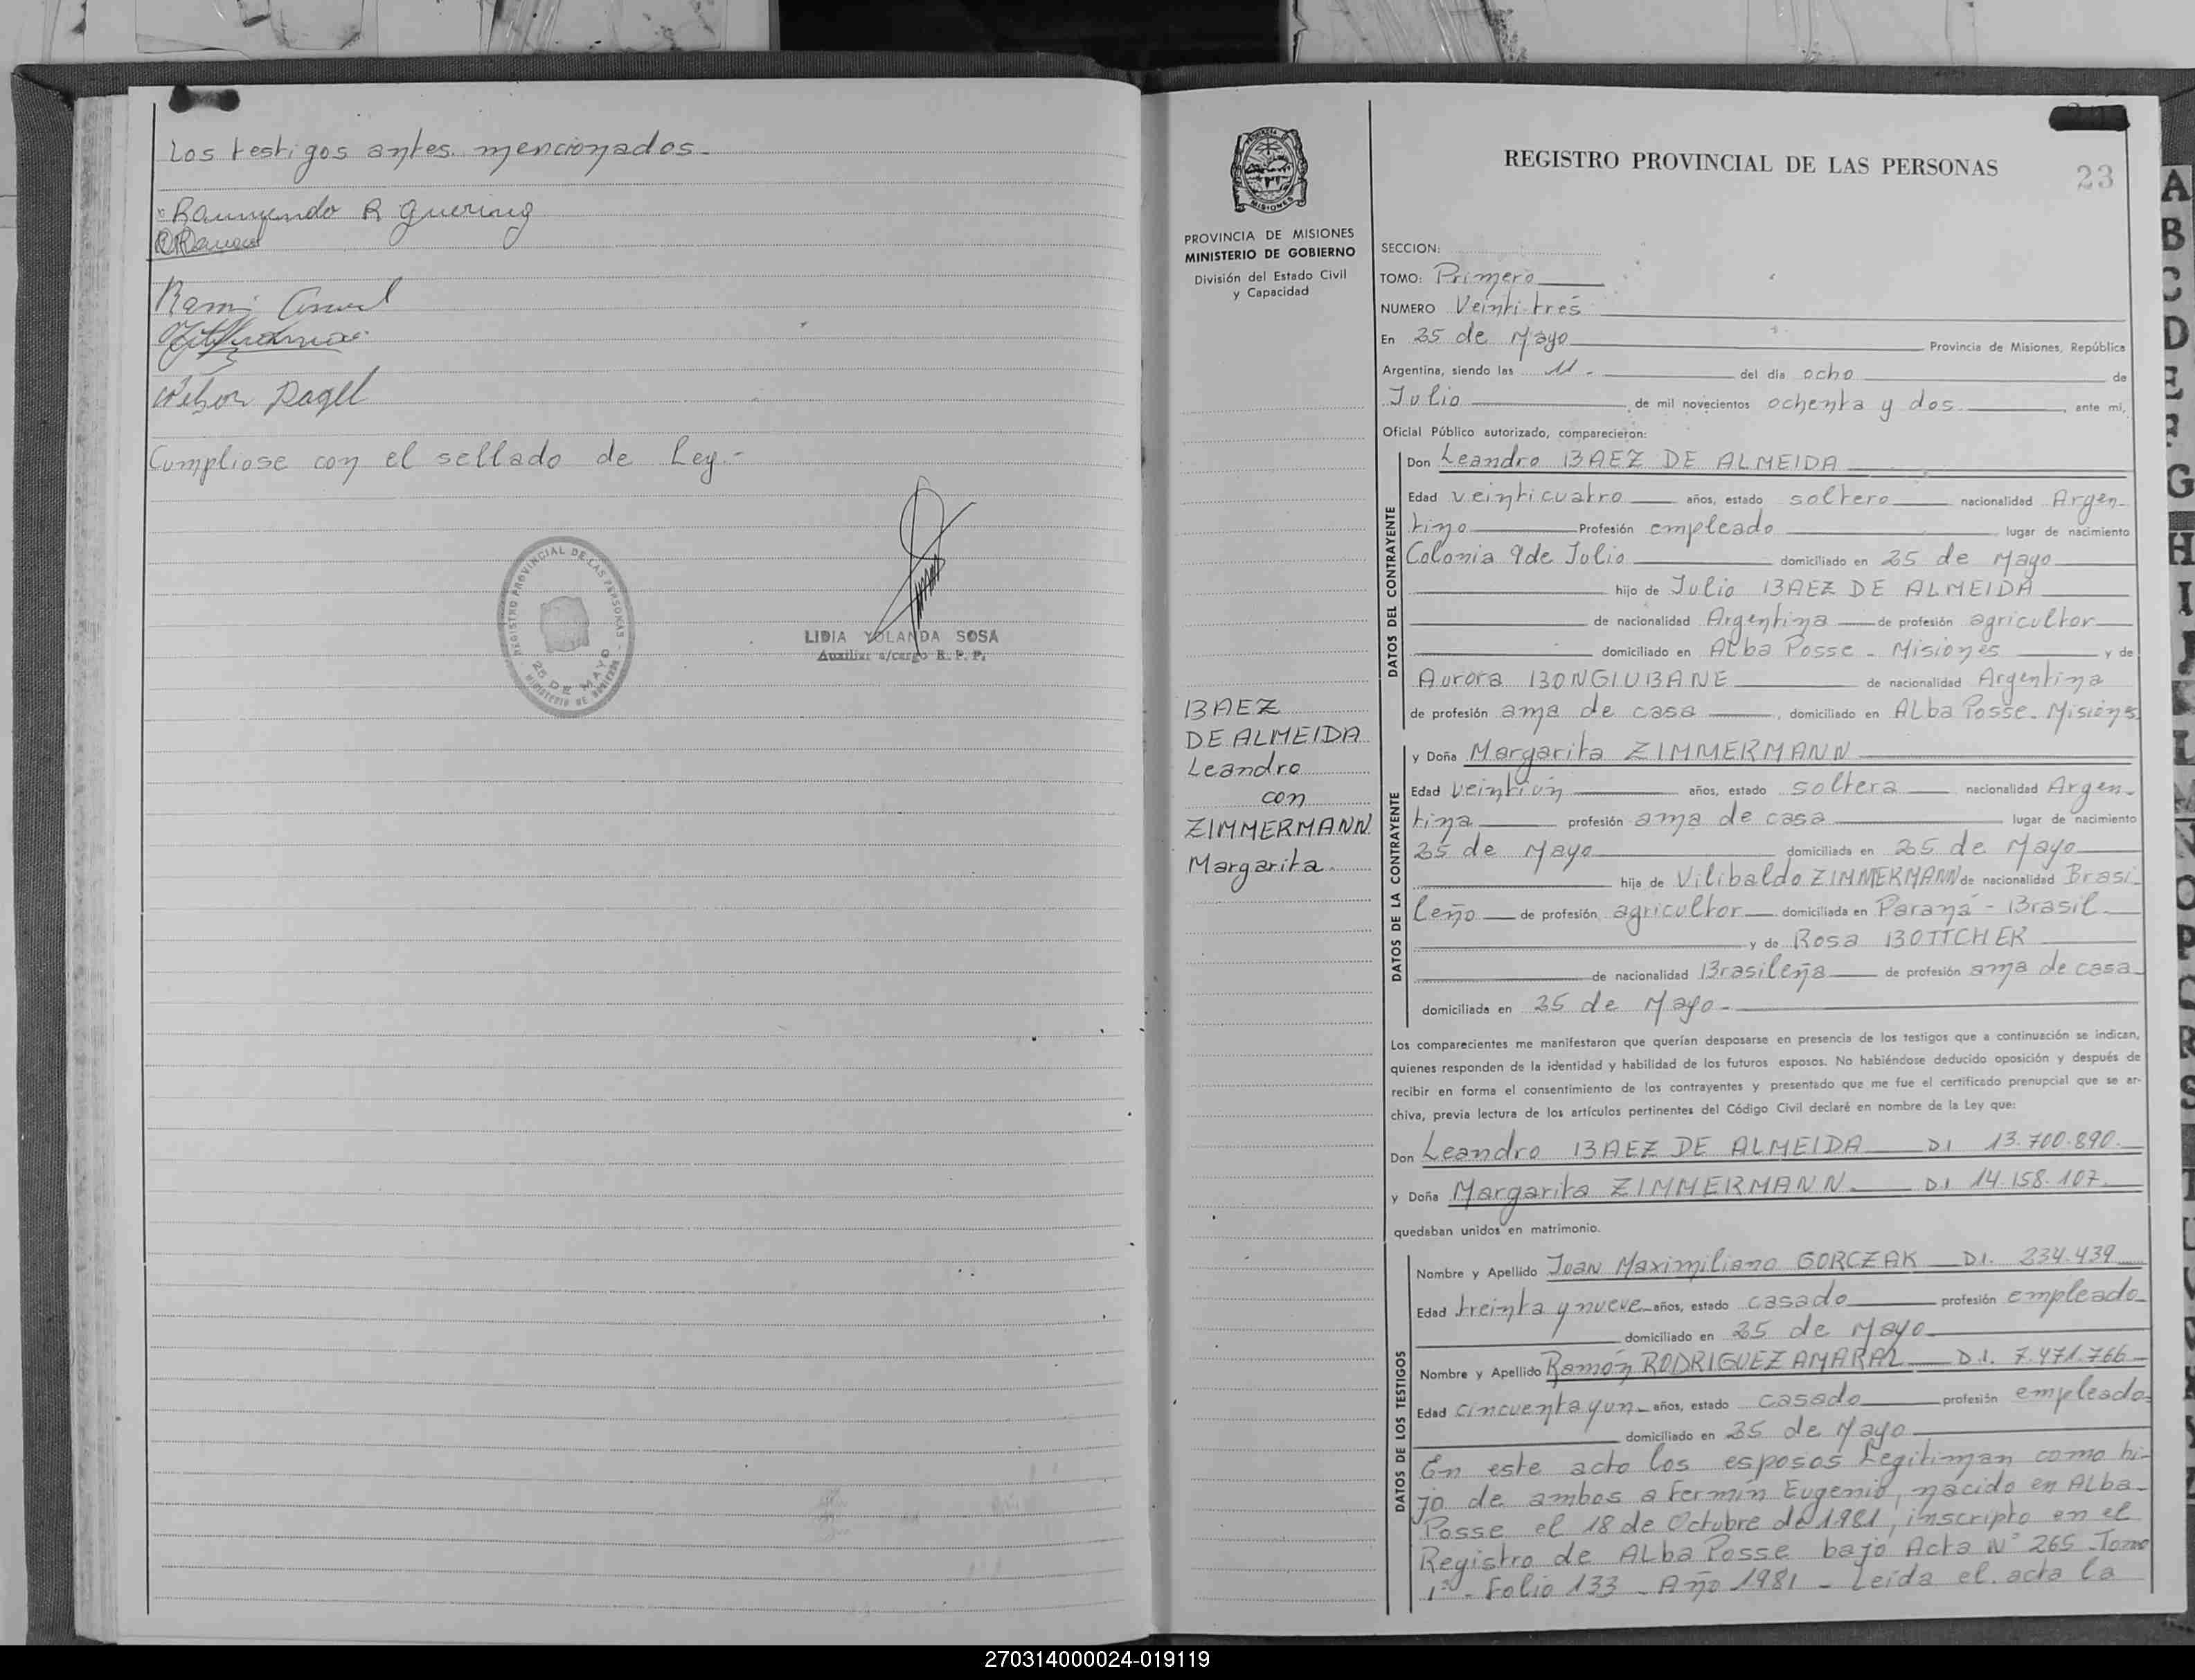 Los testigos antes mencionados.
Raimundo R Guering
Nelson Dagel
Cumpliose con el sellado de Ley.-
REGISTRO PROVINCIAL DE LAS PERSONAS
25 DE MAYO
LIDIA YOLANDA SOSA
Auxiliar a/cargo R. P. P.
PROVINCIA DE MISIONES
MINISTERIO DE GOBIERNO
División del Estado Civil
y Capacidad
BAEZ
DE ALMEIDA
Leandro
con
ZIMMERMANN
Margarita
REGISTRO PROVINCIAL DE LAS PERSONAS
23
SECCION:
TOMO: Primero
NUMERO Veintitrés
En 25 de Mayo Provincia de Misiones, República
Argentina, siendo las 11.- del día ocho de
Julio de mil novecientos ochenta y dos, ante mi,
Oficial Público autorizado, comparecieron:
DATOS DEL CONTRAYENTE
Don Leandro BAEZ DE ALMEIDA
Edad veinticuatro años, estado soltero nacionalidad Argen-
tino Profesión empleado lugar de nacimiento
Colonia 9 de Julio domiciliado en 25 de Mayo
hijo de Julio BAEZ DE ALMEIDA
de nacionalidad Argentina de profesión agricultor
domiciliado en Alba Posse - Misiones y de
Aurora BONGIUBANE de nacionalidad Argentina
de profesión ama de casa, domiciliado en Alba Posse - Misiones
DATOS DE LA CONTRAYENTE
y Doña Margarita ZIMMERMANN
Edad veintiún años, estado soltera nacionalidad Argen-
tina profesión ama de casa lugar de nacimiento
25 de Mayo domiciliada en 25 de Mayo
hija de Vilibaldo ZIMMERMANN de nacionalidad Brasi-
leño de profesión agricultor domiciliada en Paraná - Brasil
y de Rosa BOTTCHER
de nacionalidad Brasileña de profesión ama de casa
domiciliada en 25 de Mayo-
Los comparecientes me manifestaron que querían desposarse en presencia de los testigos que a continuación se indican,
quienes responden de la identidad y habilidad de los futuros esposos. No habiéndose deducido oposición y después de
recibir en forma el consentimiento de los contrayentes y presentado que me fue el certificado prenupcial que se ar-
chiva, previa lectura de los artículos pertinentes del Código Civil declaré en nombre de la Ley que:
Don Leandro BAEZ DE ALMEIDA D.I 13.700.890
y Doña Margarita ZIMMERMANN D.I 14.158.107
quedaban unidos en matrimonio.
DATOS DE LOS TESTIGOS
Nombre y Apellido Juan Maximiliano GORCZAK D.I. 234.439
Edad treinta y nueve años, estado casado profesión empleado
domiciliado en 25 de Mayo
Nombre y Apellido Ramón RODRIGUEZ AMARAL D.I. 7.471.766
Edad cincuenta y un años, estado casado profesión empleado
domiciliado en 25 de Mayo
En este acto los esposos Legitiman como hi-
jo de ambos a Fermín Eugenio, nacido en Alba
Posse el 18 de Octubre de 1981, inscripto en el
Registro de Alba Posse bajo Acta N° 265 - Tomo
1° - Folio 133 - Año 1981 - Leída el acta la
A
B
C
D
E
F
G
H
I
L
N
O
P
R
S
270314000024-019119